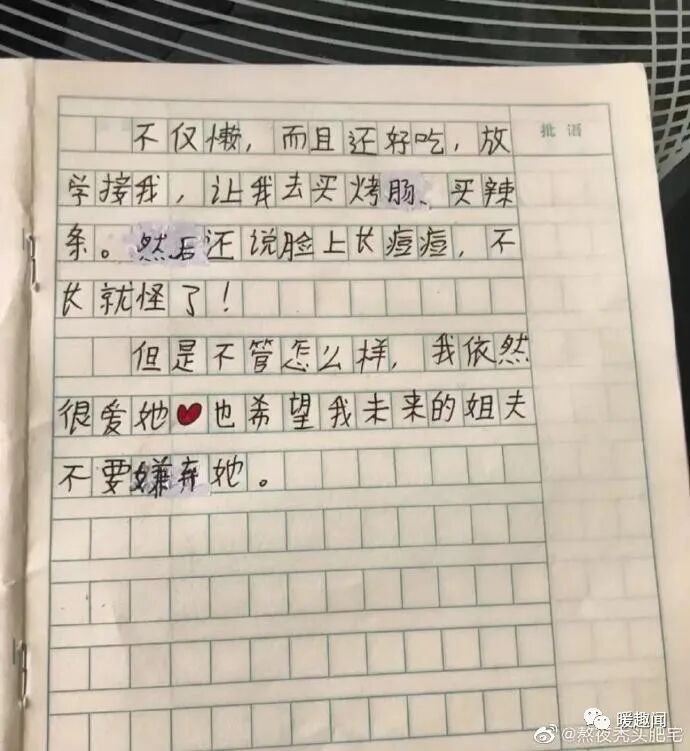 不仅懒，而且还好吃，放
学接我，让我去买烤肠、买辣
条。然后还说脸上长痘痘，不
长就怪了！
但是不管怎么样，我依然
很爱她❤也希望我未来的姐夫
不要嫌弃她。
批语
暖趣闻
@熬夜秃头肥宅